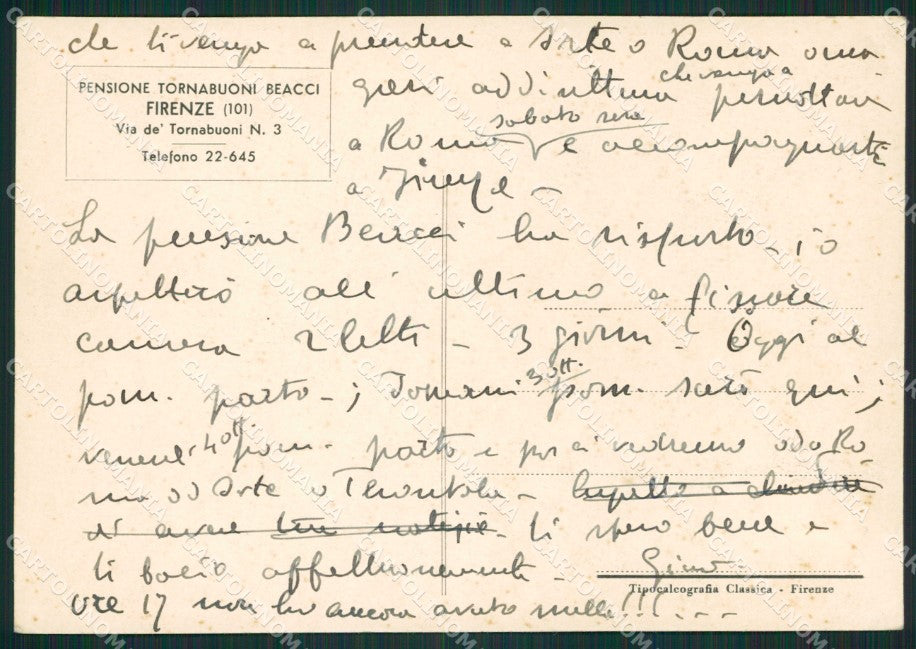 che ti venga a prendere a Orte o Roma oma
PENSIONE TORNABUONI BEACCI
FIRENZE (101)
Via de' Tornabuoni N. 3
Telefono 22-645
gari addirittura che venga a pernottare
a Roma sabato sera e accompagnarti
a Firenze -
La pensione Beacci ha risposto - io
aspetterò all' ultimo a fissare
camera 2 letti - 3 giorni - Oggi al
pom. parto - ; domani 3 ott. pom. sarò qui ;
venerdì 4 ott. pom. parto e poi ci vedremo o a Ro
ma od Orte o Terontola -
di avere tue notizie - ti spero bene e
ti bacio affettuosamente - Gino
Tipocalcografia Classica - Firenze
Ore 17 non ho ancora avuto nulla!!! . . . . .
CARTOLINOMANIA